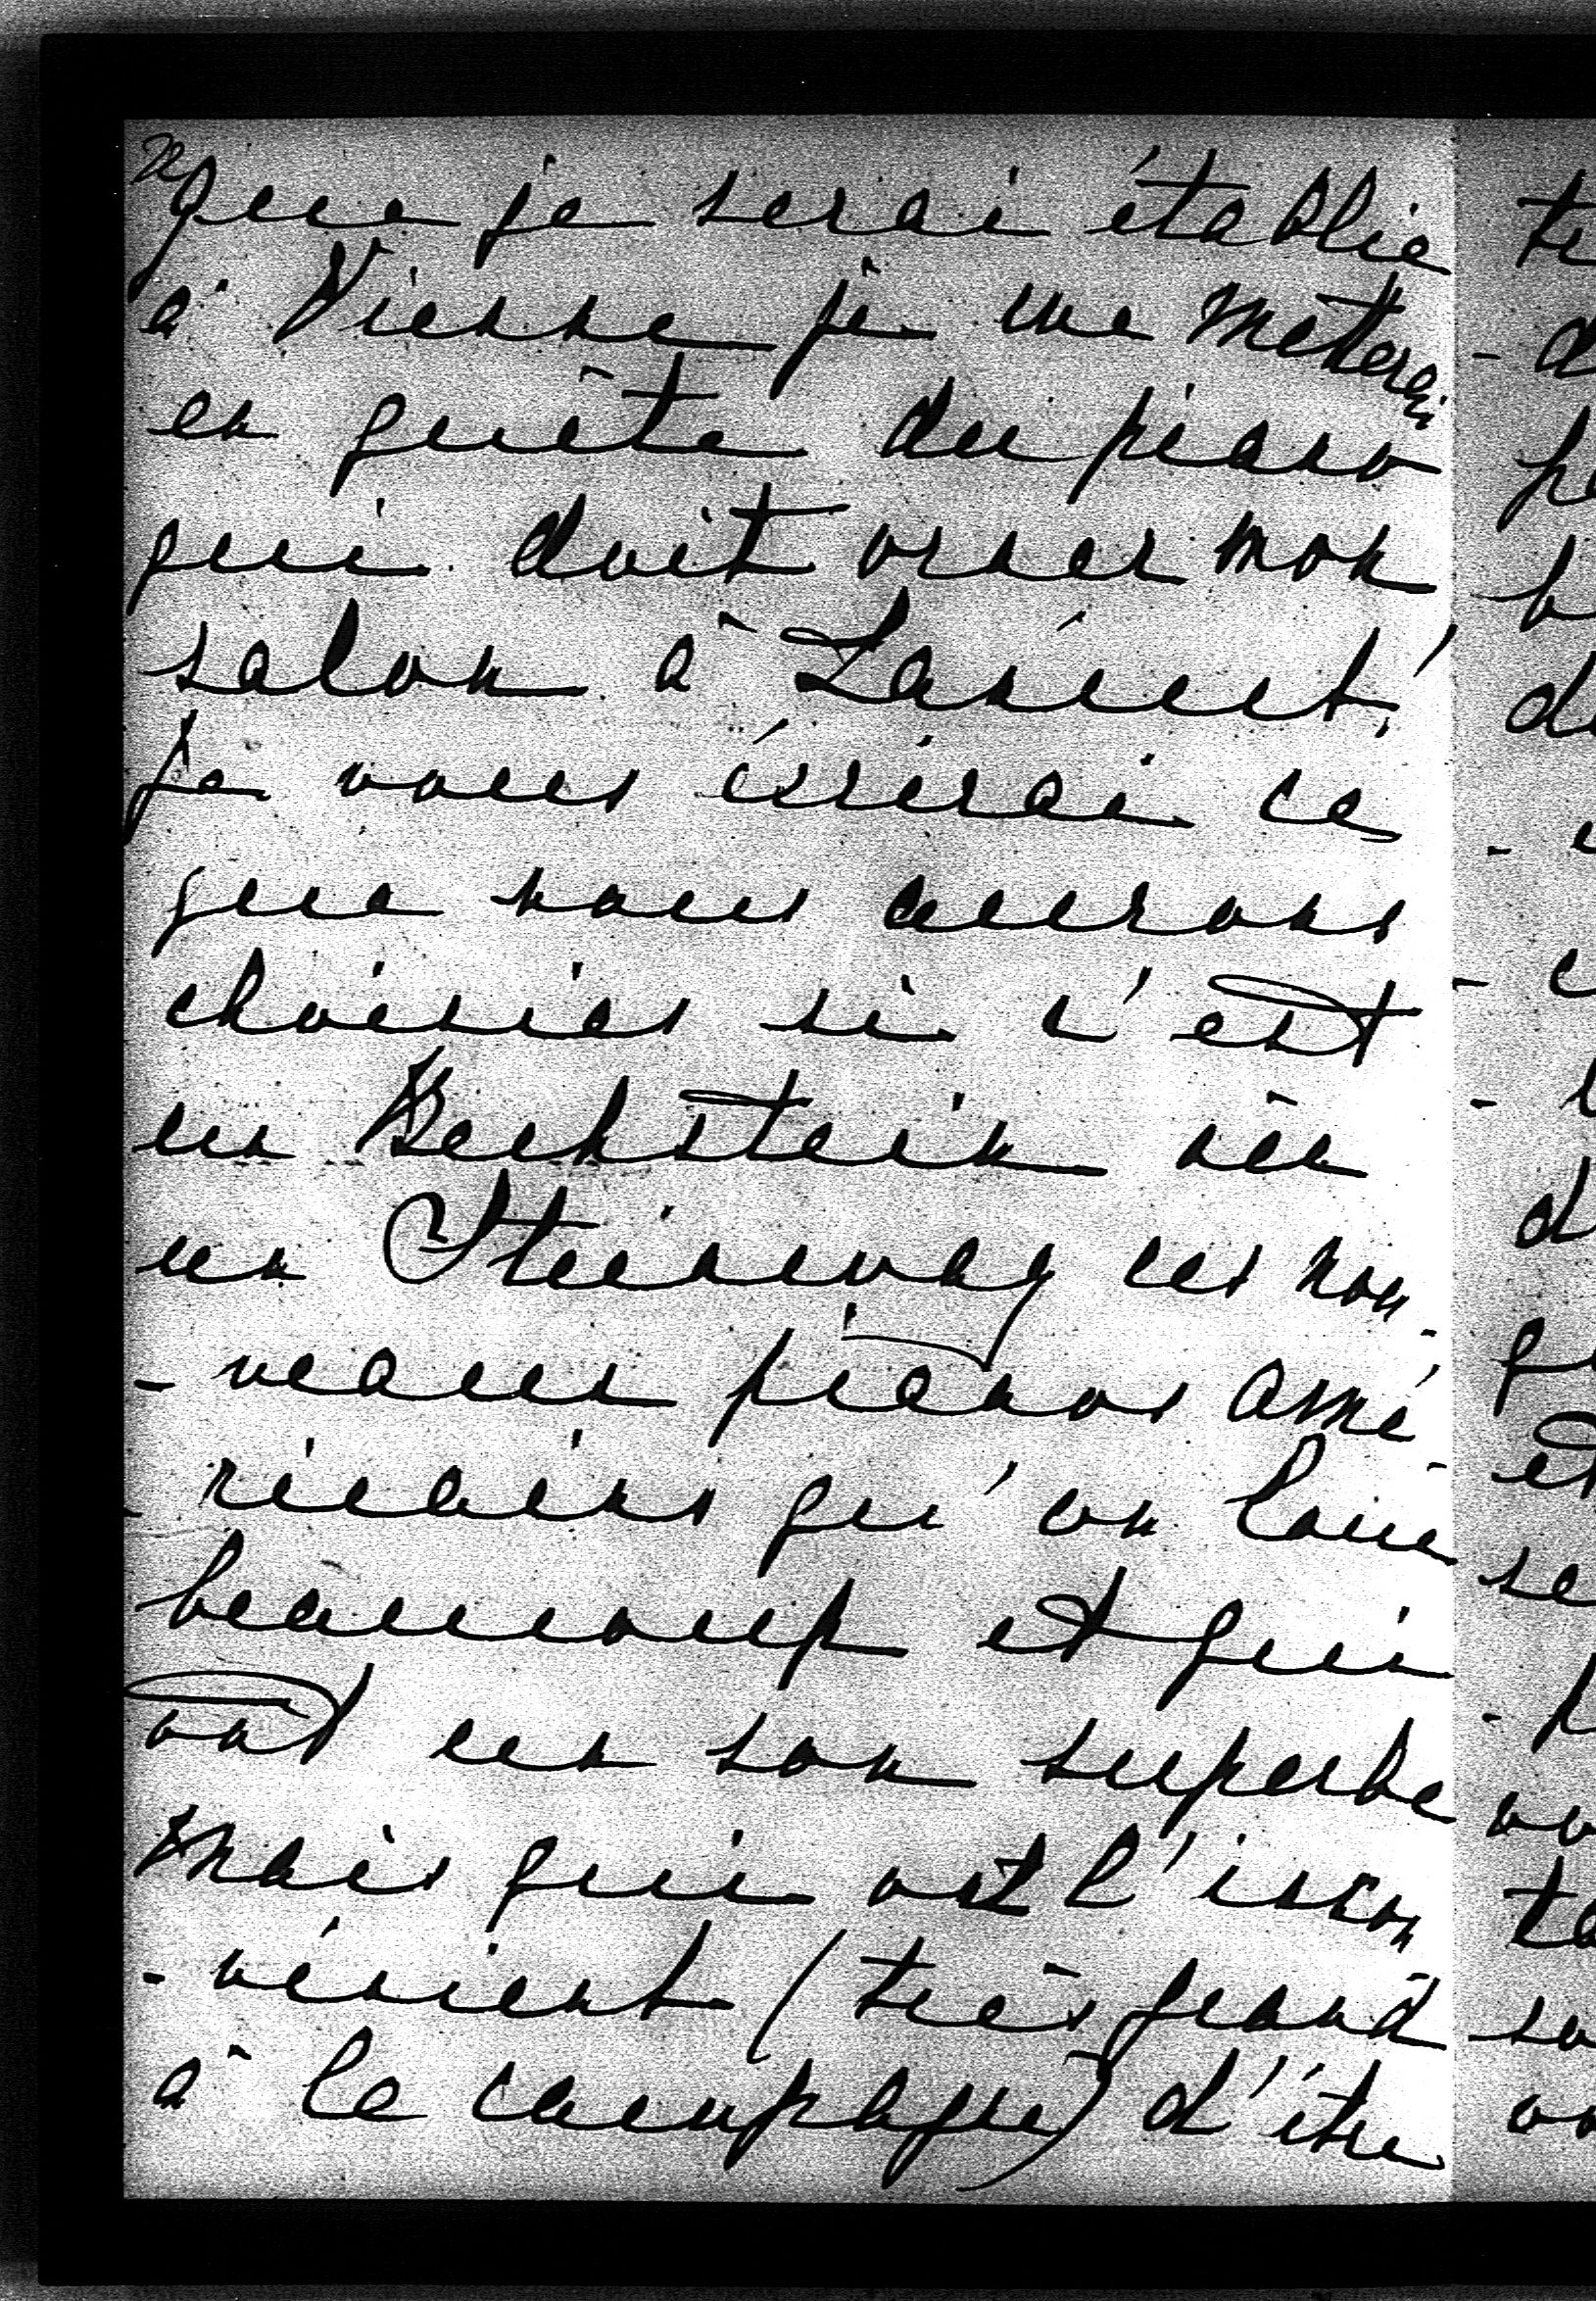 que je serai établie
à Vienne je me metterai
en quête du piano
qui doit orner mon
salon à Lancut!
Je vous écrirai ce
que nous aurons
choisies si c'est
un Bechstein où
un Steinway ces nou-
-veaux pianos amé-
-ricains qu'on loue
beaucoup et qui
ont un son superbe
mais qui ont l'incon
-vénient (très grand
à la campagne) d'être